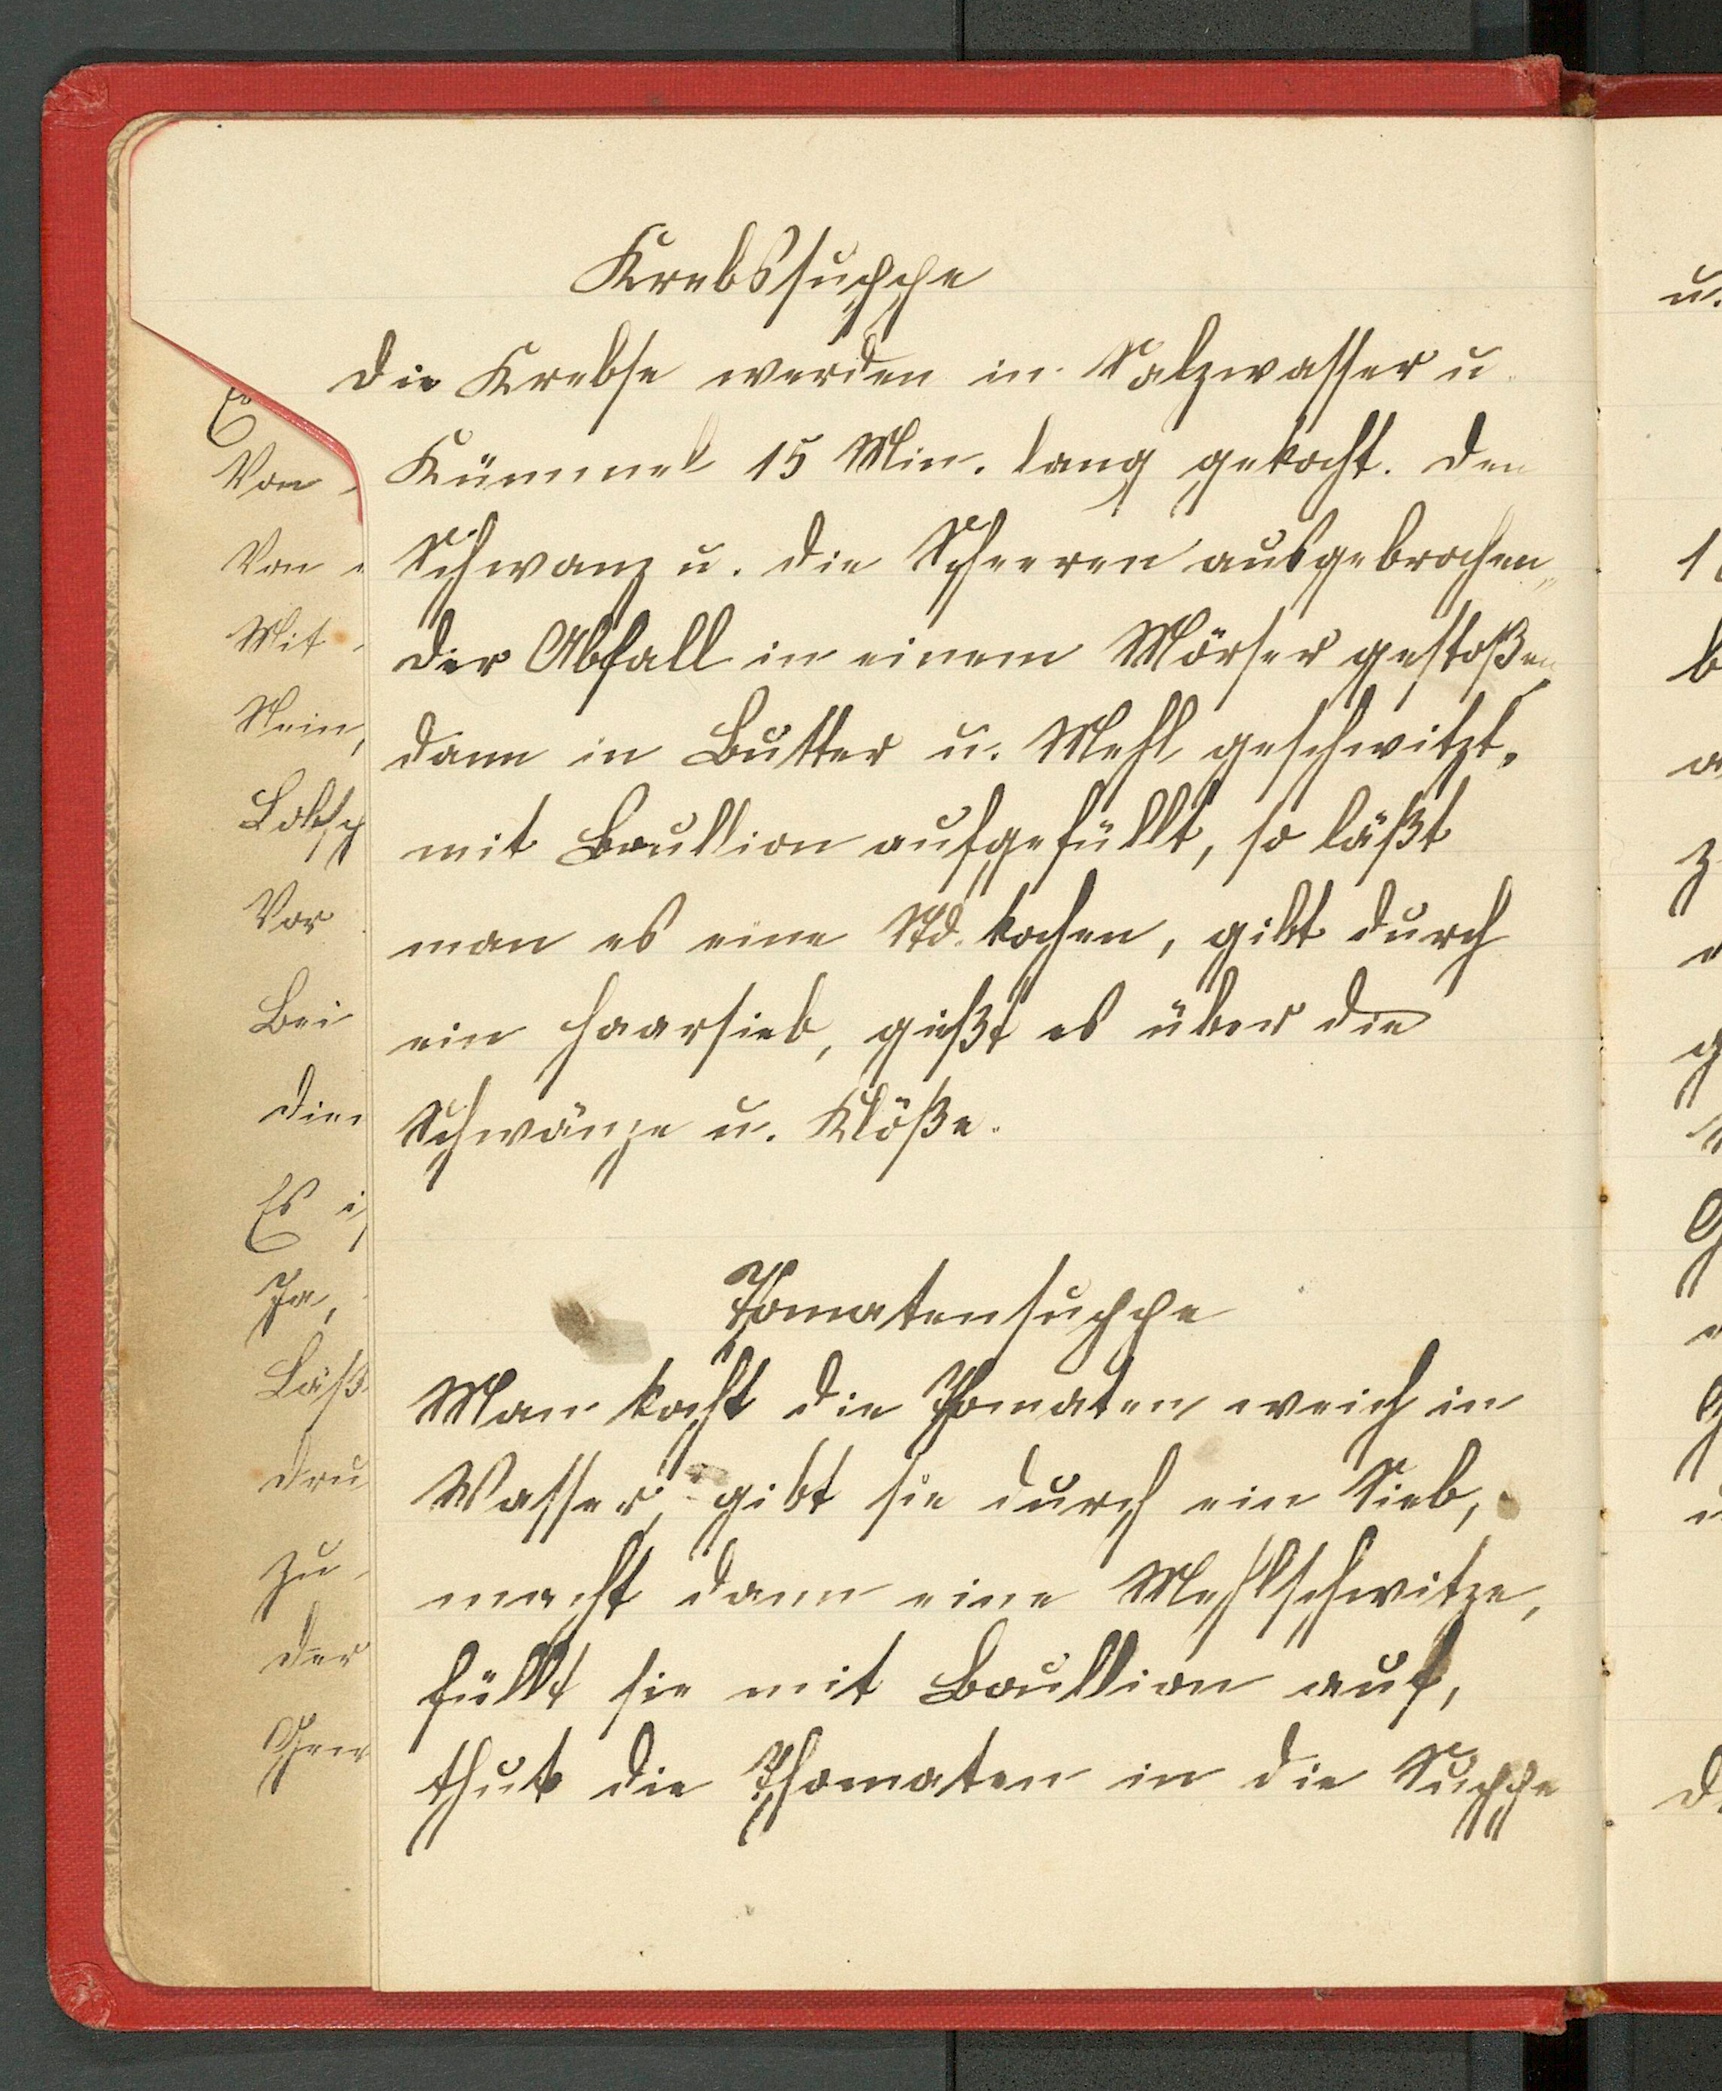 Krebssuppe
Die Krebse werden in Salzwasser u.
Kümmel 15 Min. lang gekocht. Den
Schwanz u. die Scheeren ausgebrochen,
der Abfall in einem Mörser gestoßen,
dann in Butter u. Mehl geschwitzt,
mit Boullion aufgefüllt, so läßt
man es eine Std. kochen, gibt durch
ein Haarsieb, gießt es über die
Schwänze u. Klöße.
Thomatensuppe
Man kocht die Thomaten weich in
Wasser, gibt sie durch ein Sieb,
macht dann eine Mehlschwitze,
füllt sie mit Boullion auf,
thut die Thomaten in die Suppe
Von
Von
Mit
Nein,
Vor
Bei
Es i
Ja,
Läß
dru
Zu
der
u.